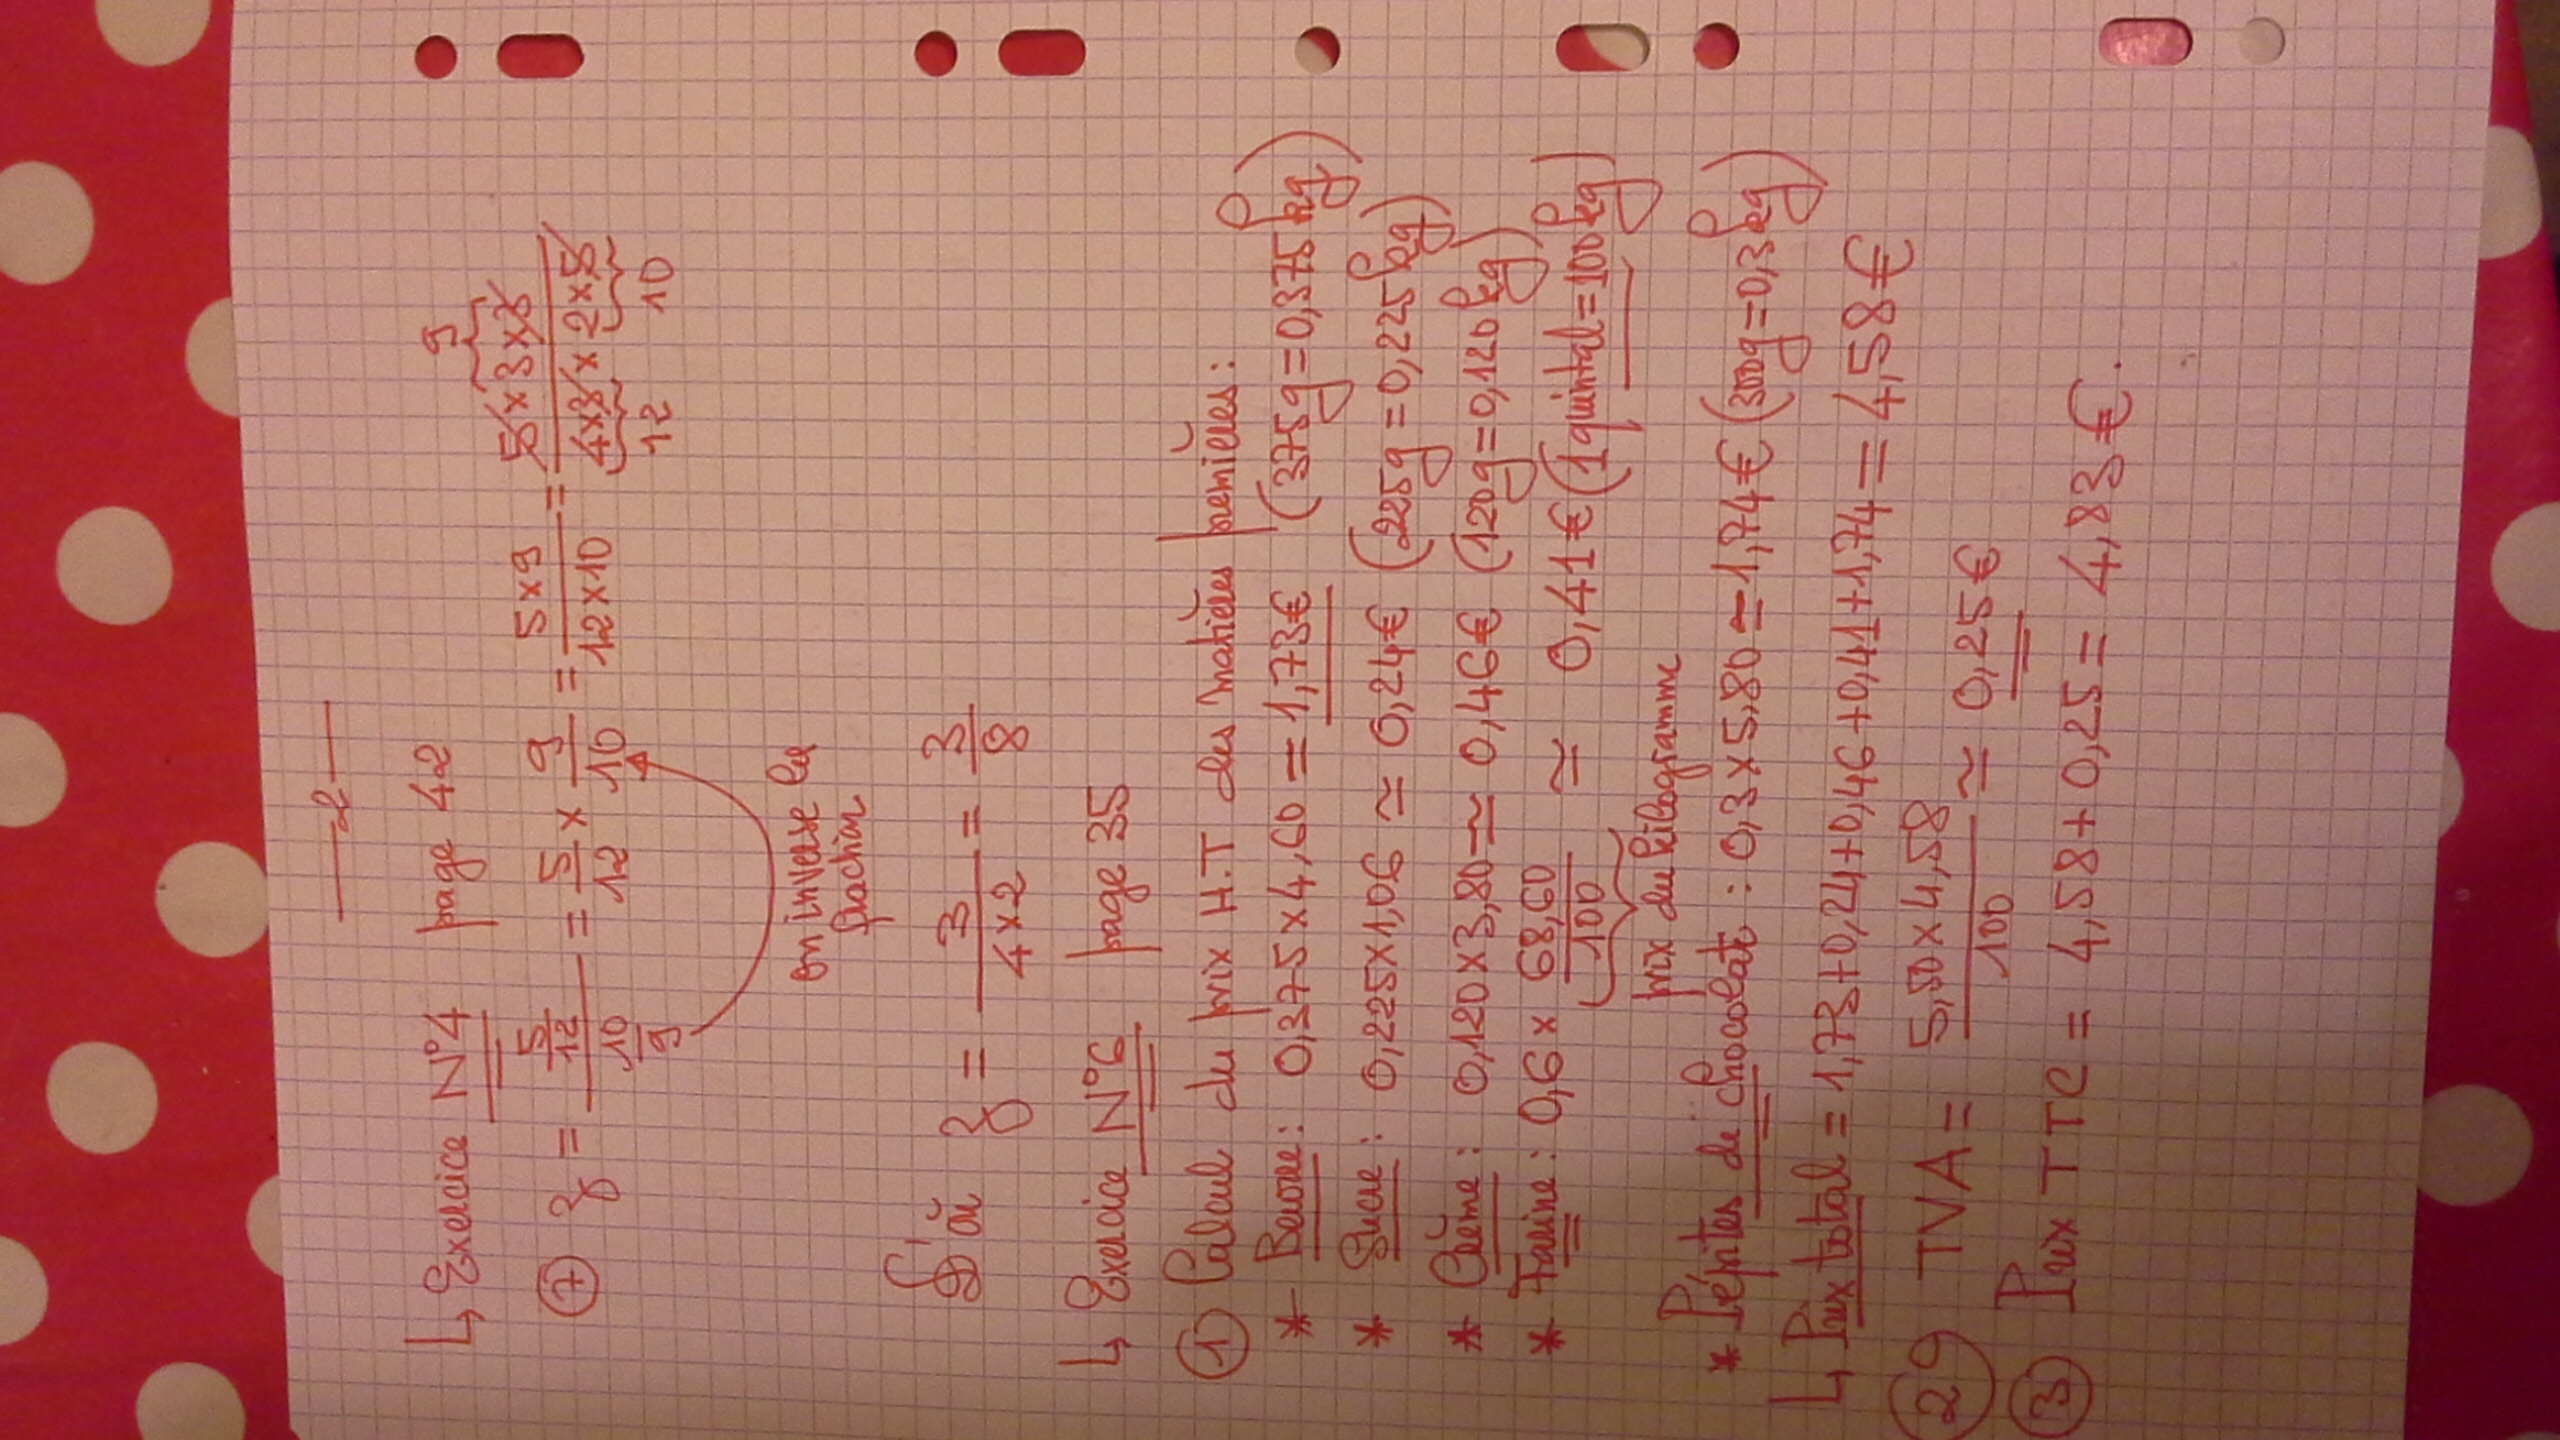 — 2 —
↳ Exercice N°4 page 42
⑦ z = (5/12)/(10/9) = 5/12 × 9/10 = (5×9)/(12×10) = (5×3×3)/(4×3×2×5)
9
12 10
on inverse la
fraction
D'où z = 3/(4×2) = 3/8
↳ Exercice N°6 page 35
① Calcul du prix H.T des matières premières :
* Beurre : 0,375×4,60 = 1,73€ (375g=0,375kg)
* Sucre : 0,225×1,06 ≃ 0,24€ (225g=0,225kg)
* Crème : 0,120×3,80 ≃ 0,46€ (120g=0,120kg)
* Farine : 0,6 × 68,60/100 ≃ 0,41€ (1 quintal=100kg)
prix du kilogramme
* Pépites de chocolat : 0,3×5,80 = 1,74€ (300g=0,3kg)
↳ Prix total = 1,73+0,24+0,46+0,41+1,74 = 4,58€
② TVA = (5,50×4,58)/100 ≃ 0,25€
③ Prix TTC = 4,58+0,25 = 4,83€.